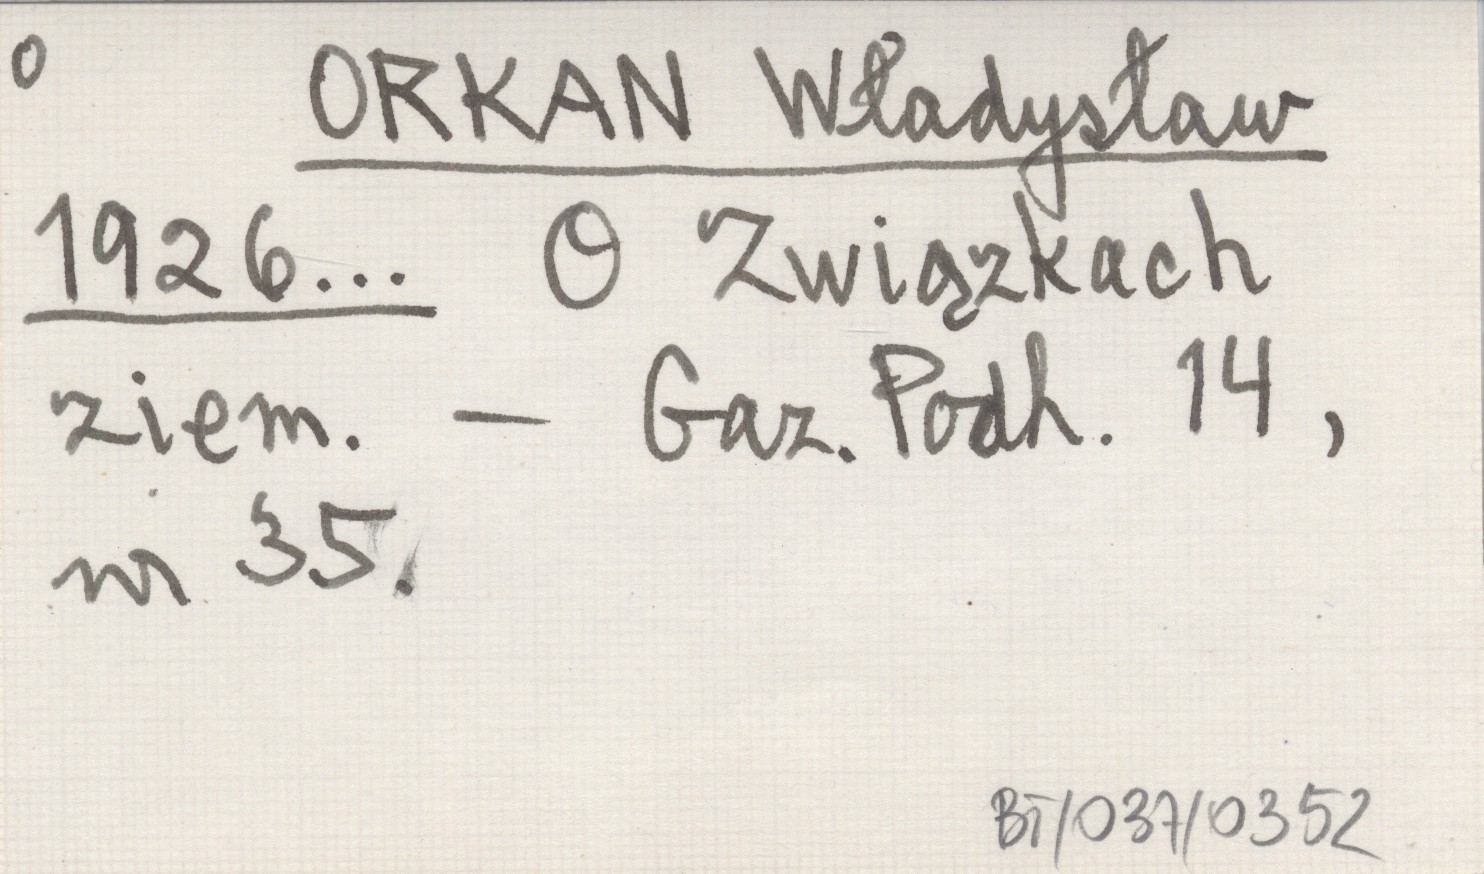 o
ORKAN Władysław
1926... O Związkach
ziem. — Gaz. Podh. 14,
nr 35.
BT/037/0352